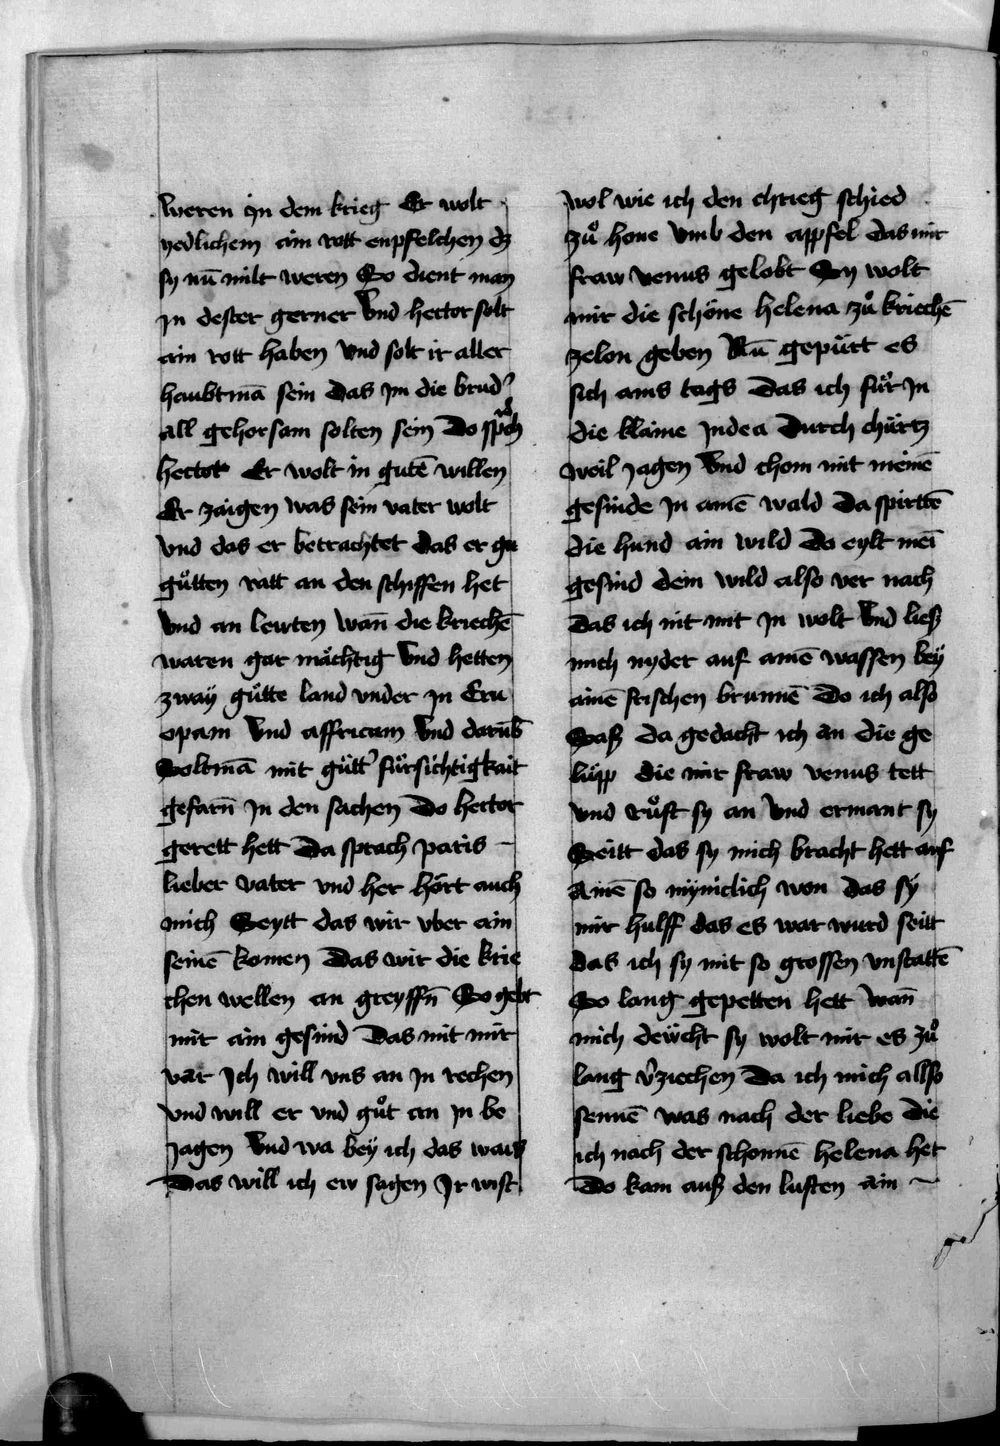 weren jn dem krieg Er wolt
yedlichem ain rott enpfelchen dz
sy nū milt weren So dient man
jn dester gerner Vnd hector solt
ain rott haben Vnd solt ir aller
haubtmā sein Das jm die brud᾽
all gehorsam solten sein Do sprach
hector Er wolt in gutē willen
Er zaigen was sein vater wolt
Vnd das er betrachtet das er gu
gůtten ratt an den schiffen het
Vnd an lewten wañ die kriechē
waren gar mächtig Vnd hetten
zway gůtte land vnder jn Eru
opam Vnd affricam Vnd darūb
Soltmā mit gůtt᾽ fürsichtigkait
gefarñ jn den sachen Do hector
gerett hett Da sprach paris –
lieber vater vnd her hört auch
mich Seytt das wir vber ain
seinē komen Das wir die krie
chen wellen an greyffñ So gebt
mir ain gesind Das mit mir
var Jch will vns an jn rechen
Vnd will er vnd gůt an jn be
jagen Vnd wa bey ich das wais
Das will ich ew sagen Jr wist
wol wie ich den chrieg schied
zů hone Vmb den appfel das mir
fraw venus gelobt Sy wolt
mir die schöne helena zů kriechē
zelon geben Nū gepürt es
sich ains tags Das ich fůr jn
die klaine jndea Durch chürtz
weil jagen Vnd chom mit meinē
gesinde jn ainē wald Da spirttē
die hund ain wild Do eylt mēi
gesind dem wild also ver nach
Das ich nit mit jn wolt Vnd ließ
mich nyder auf ainē wassen bey
ainē frischen brunnē Do ich also
Saß da gedacht ich an die ge
lüpp die mir fraw venus tett
vnd růft sy an Vnd ermant sy
Seitt das sy mich bracht hett auf
Ainē so myniclich won das sy
mir hulff das es war wurd seitt
das ich sy mit so grossen vnstattē
So lang gepetten hett Wañ
mich dewcht sy wolt mir es zů
lang v᾽ziechen Da ich mich allso
sennē was nach der liebe Die
ich nach der schonnē helena het
Do kam auß den luften ain ~